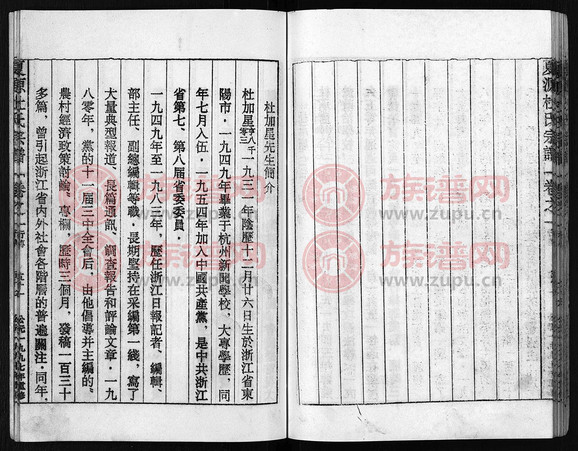 杜加星先生簡介
杜加星 一九三一年陰歷十二月廿六日生於浙江省東
陽市·一九四九年畢業于杭州新聞學校、大專學歷，同
年七月入伍·一九五四年加入中國共產黨，是中共浙江
省第七、第八屆省委委員·
一九四九年至一九八三年，歷任浙江日報記者、編輯、
部主任、副總編輯等職·長期堅持在采編第一綫，寫了
大量典型報道、長篇通訊、調查報告和評論文章·一九
八零年，黨的十一屆三中全會后，由他倡導并主編的
農村經濟政策討論，專欄，歷時三個月，發稿一百三十
多篇，曾引起浙江省內外社會各階層的普遍關注·同年，
夏源杜氏宗譜
卷之
公元一九九七年重修
夏源杜氏宗譜
卷之
族谱网
www.zupu.cn
族谱网
www.zupu.cn
族谱网
www.zupu.cn
族谱网
www.zupu.cn